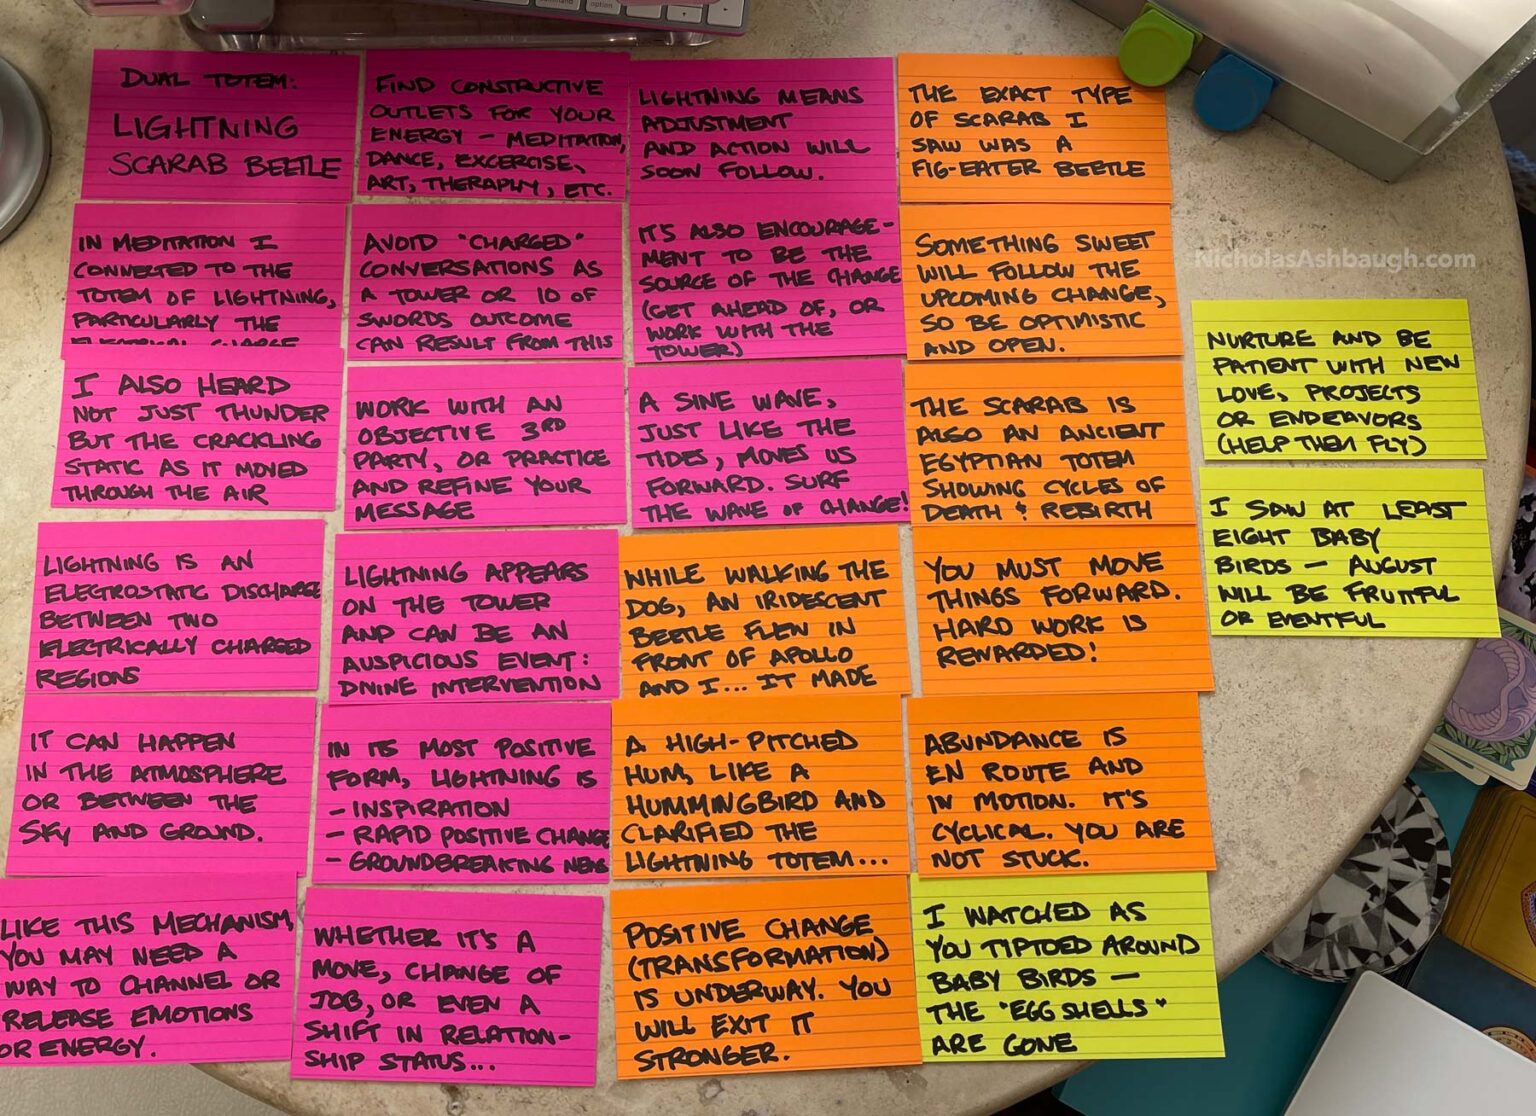 command
option
DUAL TOTEM:
LIGHTNING
SCARAB BEETLE
IN MEDITATION I
CONNECTED TO THE
TOTEM OF LIGHTNING,
PARTICULARLY THE
ELECTRICAL CHARGE
I ALSO HEARD
NOT JUST THUNDER
BUT THE CRACKLING
STATIC AS IT MOVED
THROUGH THE AIR
LIGHTNING IS AN
ELECTROSTATIC DISCHARGE
BETWEEN TWO
ELECTRICALLY CHARGED
REGIONS
IT CAN HAPPEN
IN THE ATMOSPHERE
OR BETWEEN THE
SKY AND GROUND.
LIKE THIS MECHANISM,
YOU MAY NEED A
WAY TO CHANNEL OR
RELEASE EMOTIONS
OR ENERGY.
FIND CONSTRUCTIVE
OUTLETS FOR YOUR
ENERGY – MEDITATION,
DANCE, EXCERCISE,
ART, THERAPHY, ETC.
AVOID "CHARGED"
CONVERSATIONS AS
A TOWER OR 10 OF
SWORDS OUTCOME
CAN RESULT FROM THIS
WORK WITH AN
OBJECTIVE 3RD
PARTY, OR PRACTICE
AND REFINE YOUR
MESSAGE
LIGHTNING APPEARS
ON THE TOWER
AND CAN BE AN
AUSPICIOUS EVENT:
DIVINE INTERVENTION
IN ITS MOST POSITIVE
FORM, LIGHTNING IS
– INSPIRATION
– RAPID POSITIVE CHANGE
– GROUNDBREAKING NEWS
WHETHER IT'S A
MOVE, CHANGE OF
JOB, OR EVEN A
SHIFT IN RELATION-
SHIP STATUS...
LIGHTNING MEANS
ADJUSTMENT
AND ACTION WILL
SOON FOLLOW.
IT'S ALSO ENCOURAGE-
MENT TO BE THE
SOURCE OF THE CHANGE
(GET AHEAD OF, OR
WORK WITH THE
TOWER)
A SINE WAVE,
JUST LIKE THE
TIDES, MOVES US
FORWARD. SURF
THE WAVE OF CHANGE!
WHILE WALKING THE
DOG, AN IRIDESCENT
BEETLE FLEW IN
FRONT OF APOLLO
AND I... IT MADE
A HIGH-PITCHED
HUM, LIKE A
HUMMINGBIRD AND
CLARIFIED THE
LIGHTNING TOTEM...
POSITIVE CHANGE
(TRANSFORMATION)
IS UNDERWAY. YOU
WILL EXIT IT
STRONGER.
THE EXACT TYPE
OF SCARAB I
SAW WAS A
FIG-EATER BEETLE
SOMETHING SWEET
WILL FOLLOW THE
UPCOMING CHANGE,
SO BE OPTIMISTIC
AND OPEN.
THE SCARAB IS
ALSO AN ANCIENT
EGYPTIAN TOTEM
SHOWING CYCLES OF
DEATH & REBIRTH
YOU MUST MOVE
THINGS FORWARD.
HARD WORK IS
REWARDED!
ABUNDANCE IS
EN ROUTE AND
IN MOTION. IT'S
CYCLICAL. YOU ARE
NOT STUCK.
I WATCHED AS
YOU TIPTOED AROUND
BABY BIRDS –
THE "EGG SHELLS"
ARE GONE
NicholasAshbaugh.com
NURTURE AND BE
PATIENT WITH NEW
LOVE, PROJECTS
OR ENDEAVORS
(HELP THEM FLY)
I SAW AT LEAST
EIGHT BABY
BIRDS – AUGUST
WILL BE FRUITFUL
OR EVENTFUL